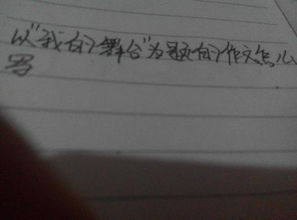 以"我的舞台"为题的作文怎么
写